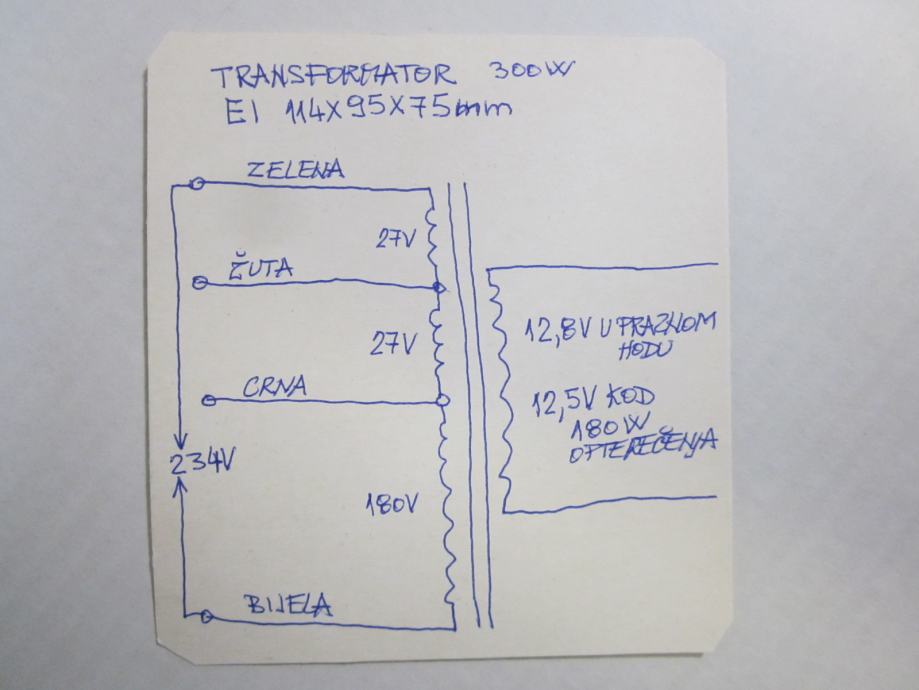 TRANSFORMATOR 300W
EI 114X95X75mm
ZELENA
27V
ŽUTA
27V
CRNA
234V
180V
BIJELA
12,8V U PRAZNOM
HODU
12,5V KOD
180W
OPTEREČENJA